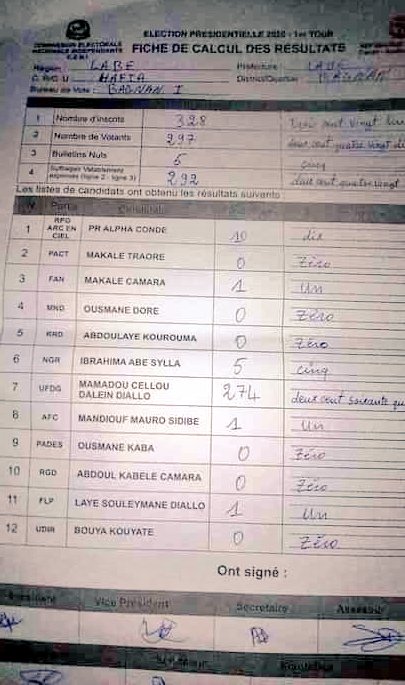 COMMISSION ELECTORALE
NATIONALE INDEPENDANTE
CENI
ELECTION PRESIDENTIELLE 2020 - 1er TOUR
FICHE DE CALCUL DES RESULTATS
Région : LABE Préfecture : LABE
C. R/C. U HAFIA District/Quartier BAGNAN
Bureau de Vote : BAGNAN I
1 Nombre d'inscrits 328 cent vingt
2 Nombre de Votants 297 deux cent quatre vingt
3 Bulletins Nuls 5 cinq
4 Suffrages Valablement exprimés (ligne 2 - ligne 3) 292 deux cent quatre vingt
Les listes de candidats ont obtenu les résultats suivants
N° Partis Candidats
1 RPG ARC EN CIEL PR ALPHA CONDE 10 dix
2 PACT MAKALE TRAORE 0 Zéro
3 FAN MAKALE CAMARA 1 Un
4 MND OUSMANE DORE 0 Zéro
5 RRD ABDOULAYE KOUROUMA 0 Zéro
6 NGR IBRAHIMA ABE SYLLA 5 cinq
7 UFDG MAMADOU CELLOU DALEIN DIALLO 274 deux cent soixante
8 AFC MANDIOUF MAURO SIDIBE 1 Un
9 PADES OUSMANE KABA 0 Zéro
10 RGD ABDOUL KABELE CAMARA 0 Zéro
11 PLP LAYE SOULEYMANE DIALLO 1 Un
12 UDIR BOUYA KOUYATE 0 Zéro
Ont signé :
Président Vice Président Secrétaire Assesseur